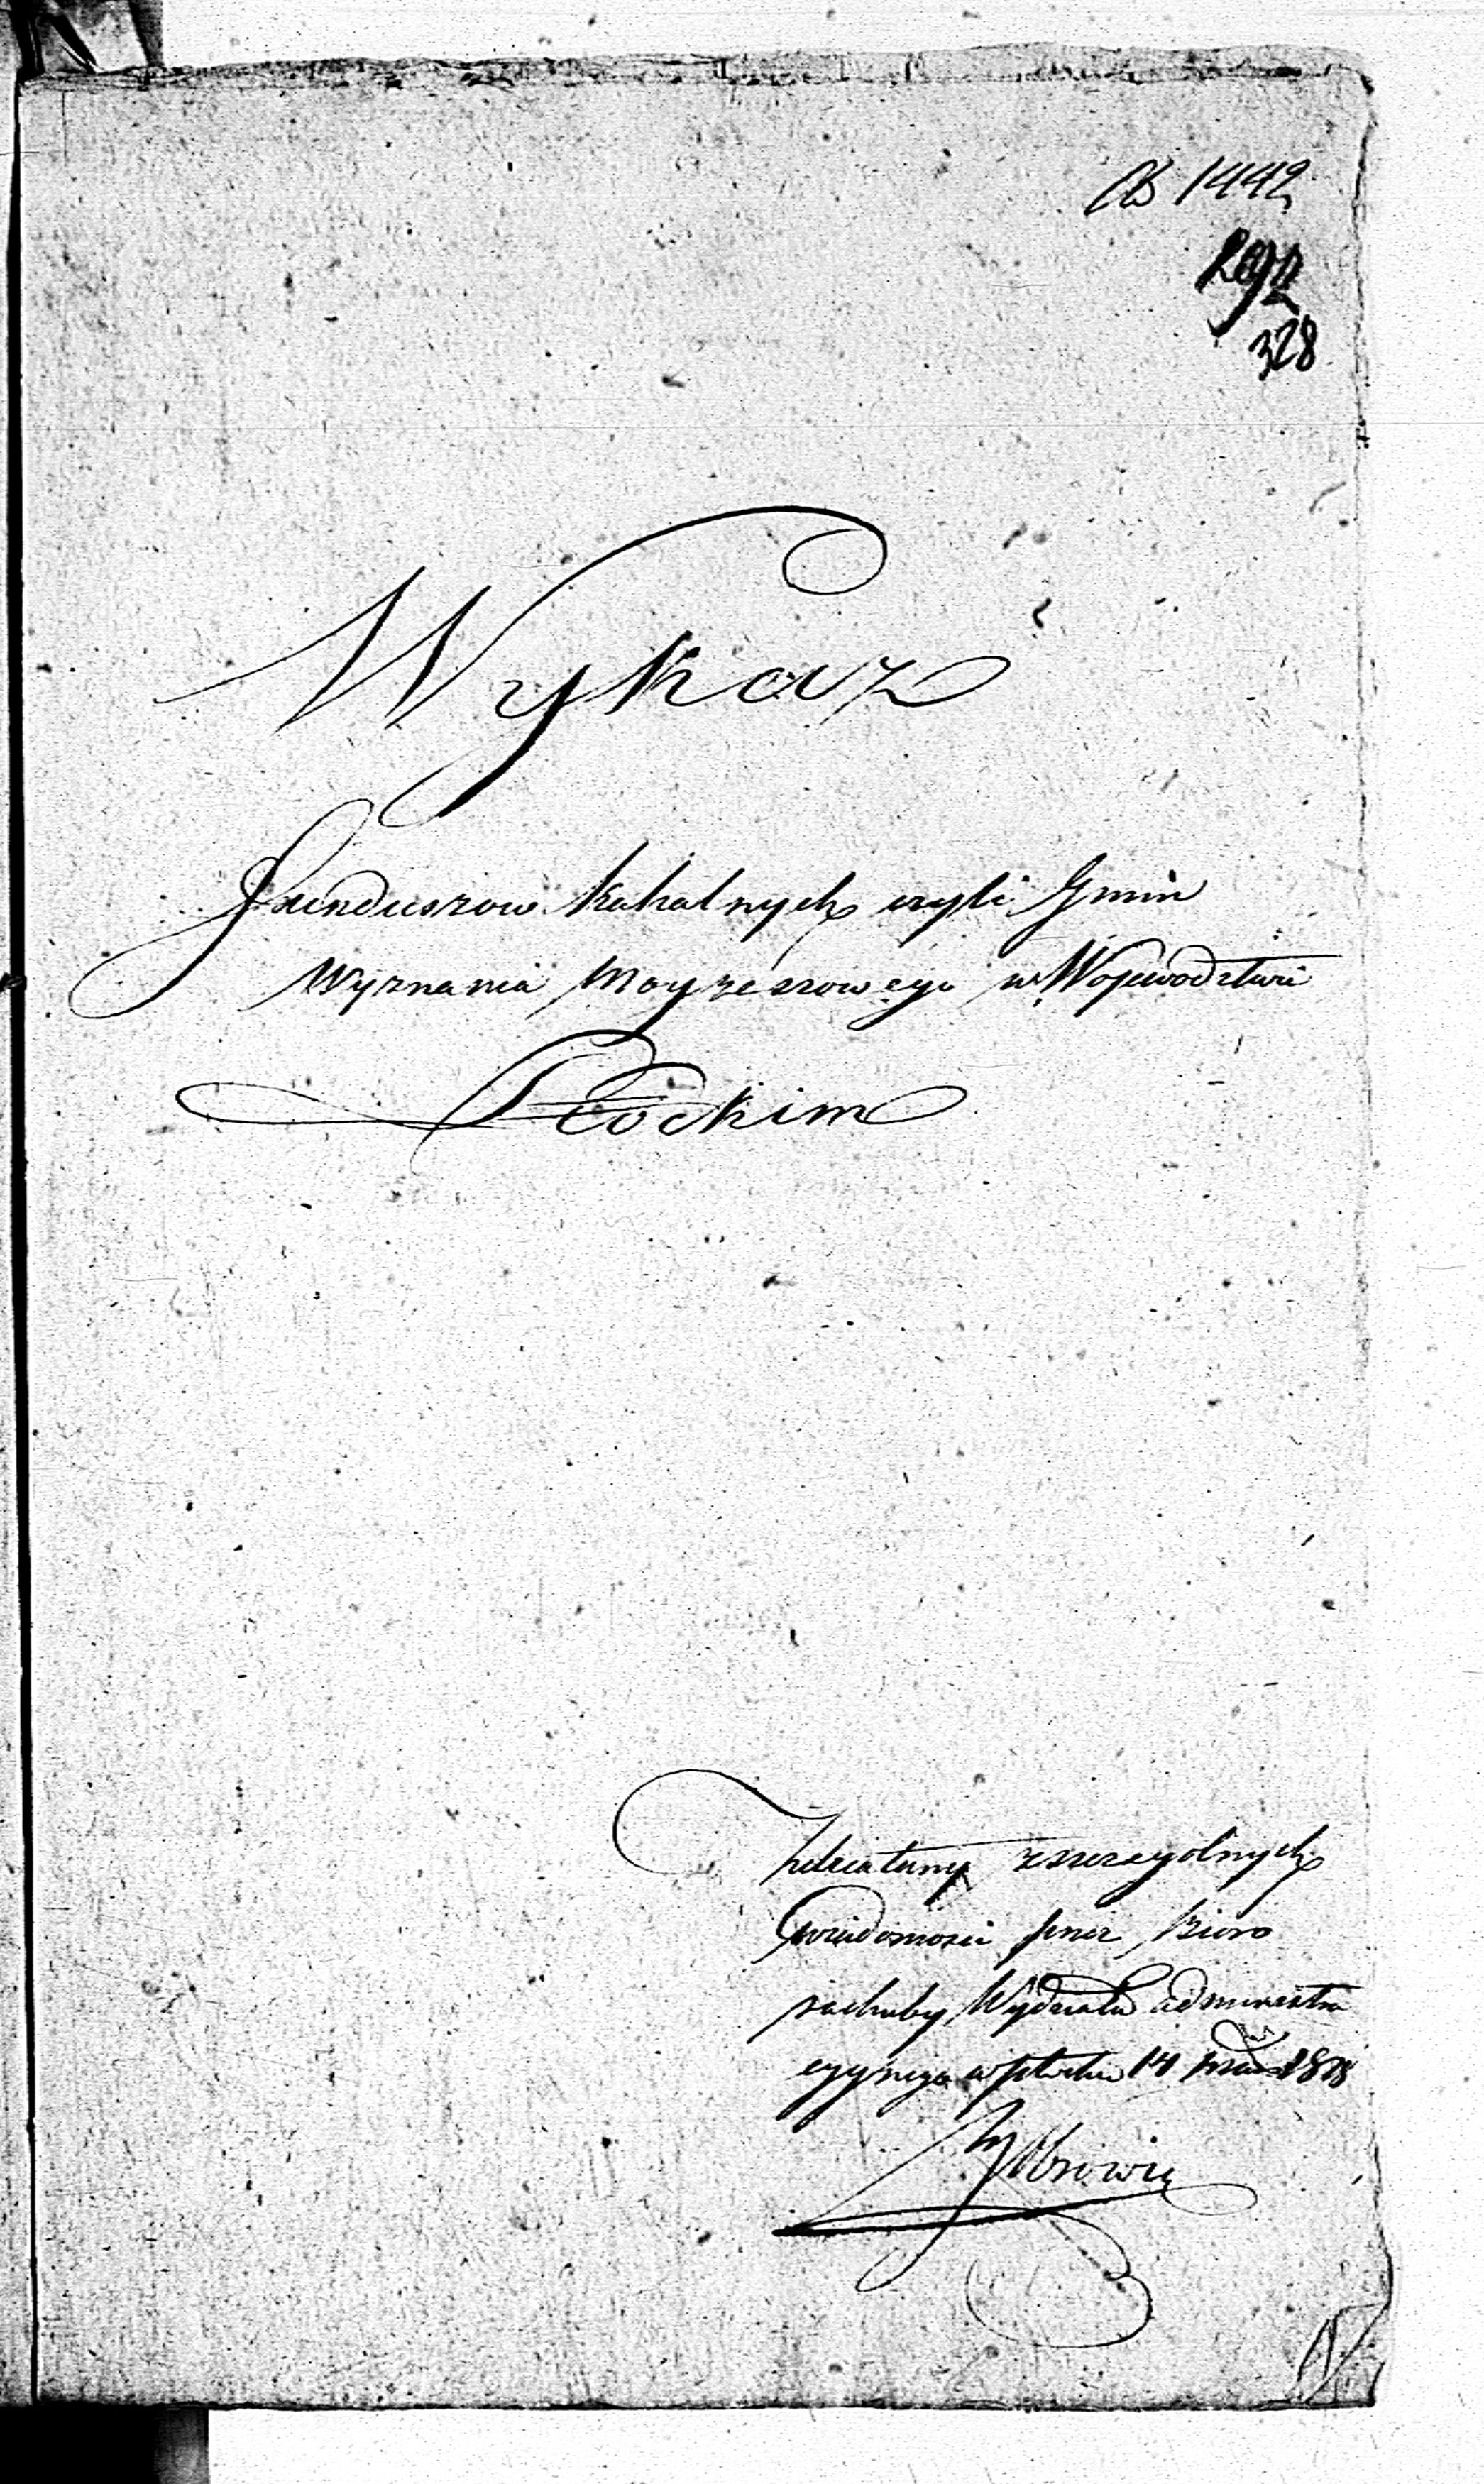 1442
328
Wykaz
Funduszow Kahalnych czyli Gmin
Wyznania Moyżeszowego w Wojewodztwie
Płockim
zszczegolnych
Wiadomosci przez Biuro
rachuby Wydziału administra
cyjnego w Płocku 14